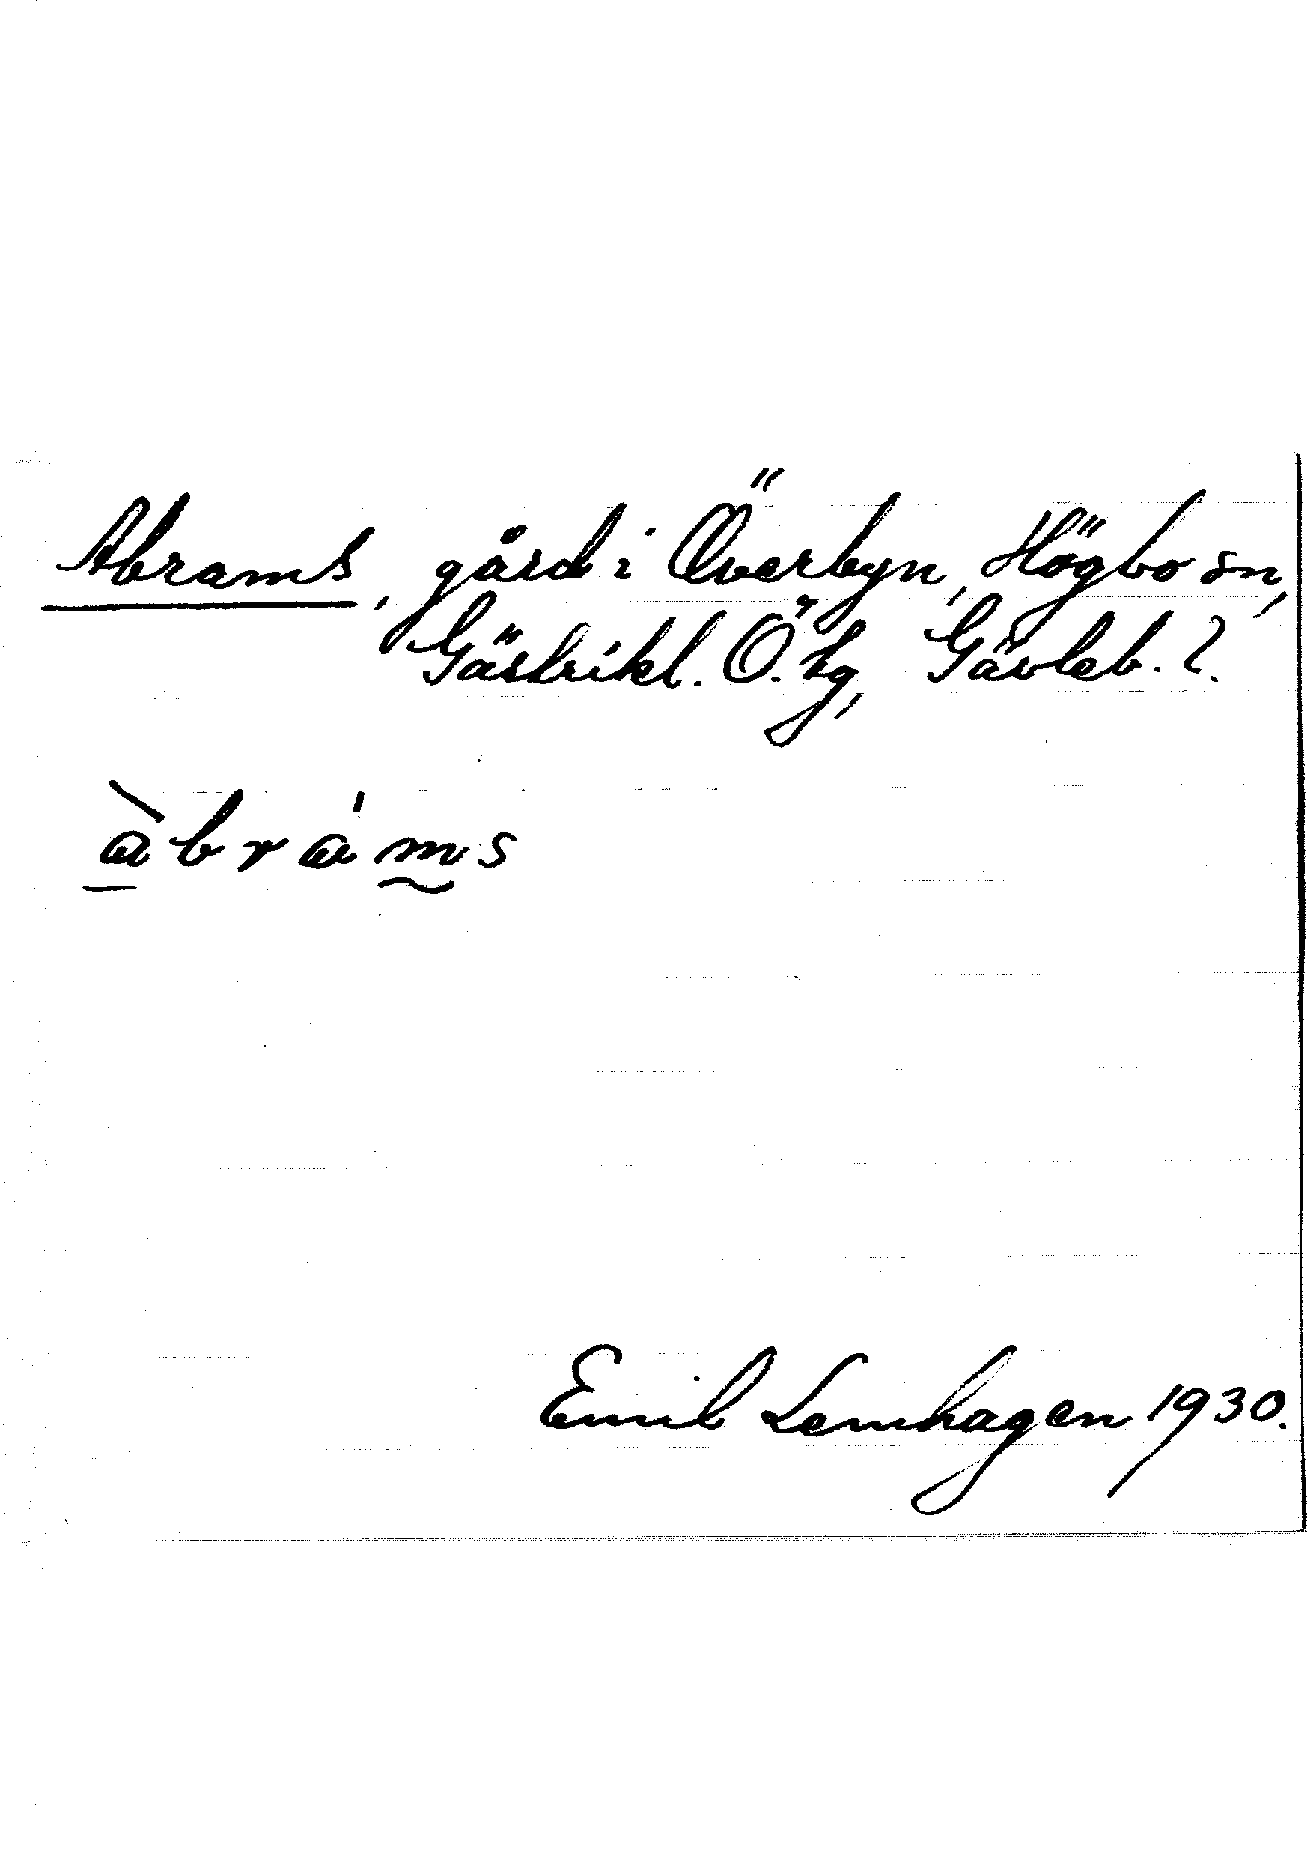 Abrams, gård i Överbyn, Högbo sn,
Gästrikl. Ö. tg, Gävleb. l.
àbráms
Emil Lemhagen 1930.